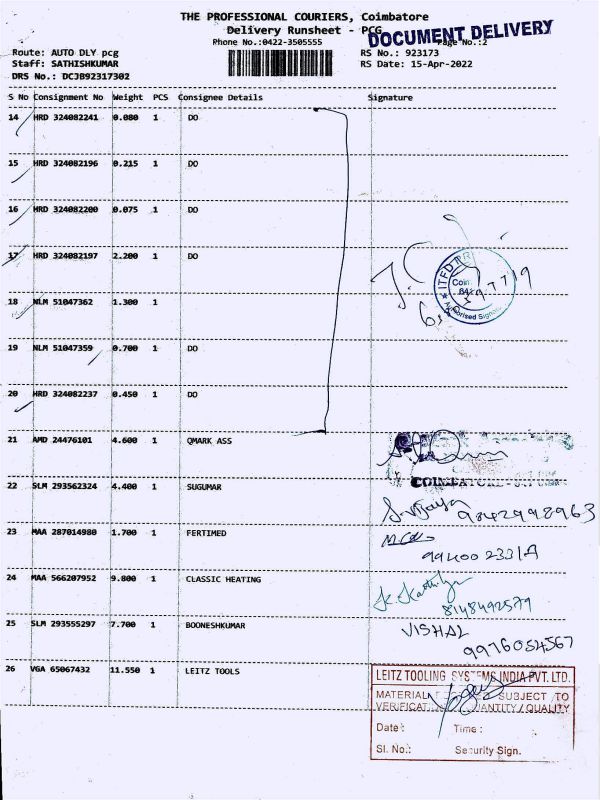 THE PROFESSIONAL COURIERS, Coimbatore
Delivery Runsheet - PCG
DOCUMENT DELIVERY
Phone No.:0422-3505555
Page No.:2
Route: AUTO DLY pcg
RS No.: 923173
Staff: SATHISHKUMAR
RS Date: 15-Apr-2022
DRS No.: DCJB92317302
S No Consignment No Weight PCS Consignee Details Signature
14 HRD 324082241 0.080 1 DO
15 HRD 324082196 0.215 1 DO
16 HRD 324082200 0.075 1 DO
17 HRD 324082197 2.200 1 DO
18 NLM 51047362 1.300 1
19 NLM 51047359 0.700 1 DO
20 HRD 324082237 0.450 1 DO
21 AMD 24476101 4.600 1 QMARK ASS
COIMBATORE
22 SLM 293562324 4.400 1 SUGUMAR
S. Vijaya
9842998963
23 MAA 287014980 1.700 1 FERTIMED
24 MAA 566207952 9.800 1 CLASSIC HEATING
8148492579
25 SLM 293555297 7.700 1 BOONESHKUMAR
VISHAL
9976054567
26 VGA 65067432 11.550 1 LEITZ TOOLS
LEITZ TOOLING SYSTEMS INDIA PVT. LTD.
MATERIAL SUBJECT TO
QUANTITY / QUALITY
Date: Time:
Sl. No.: Security Sign.